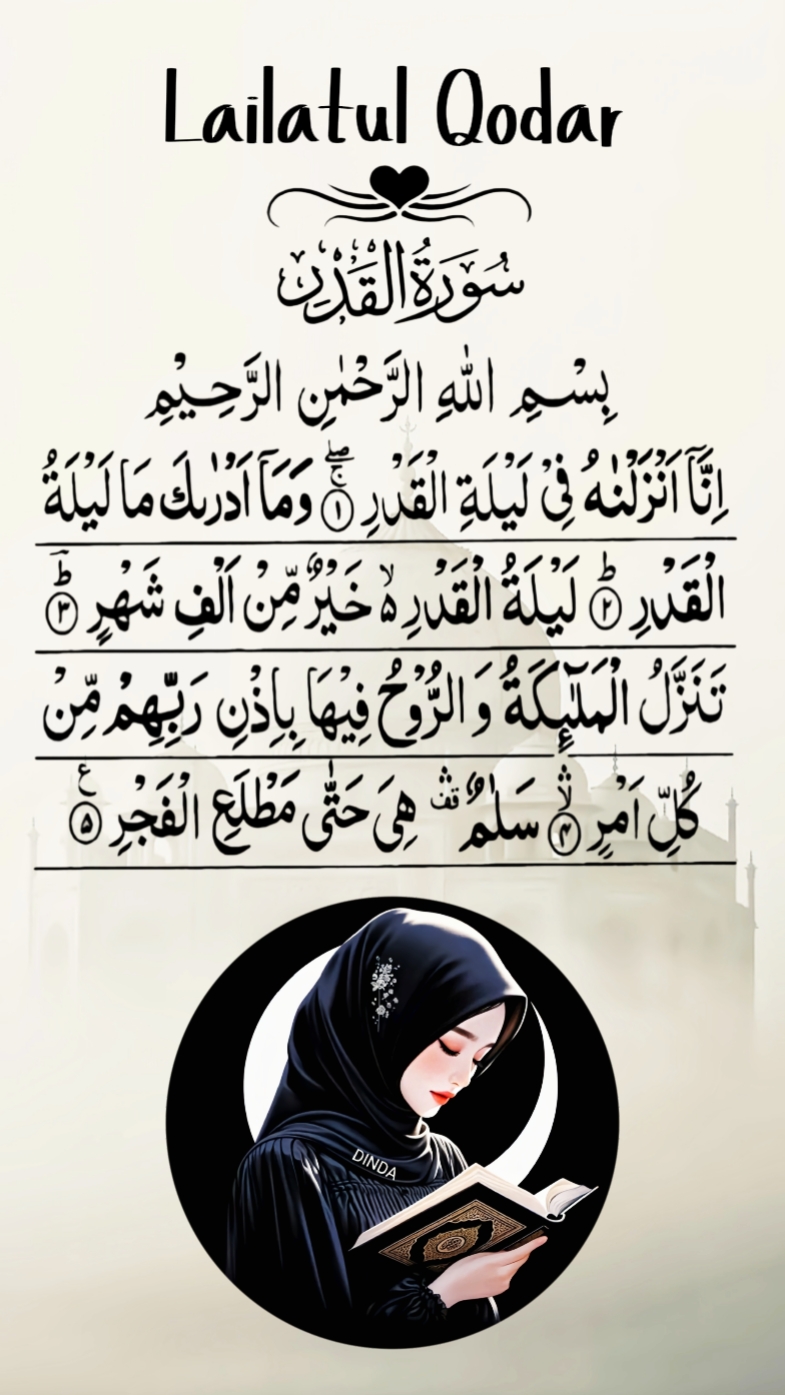 Lailatul Qodar
سُوْرَةُ الْقَدْرِ
بِسْمِ اللّٰهِ الرَّحْمٰنِ الرَّحِيْمِ
اِنَّآ اَنْزَلْنٰهُ فِيْ لَيْلَةِ الْقَدْرِ ۖۚ ١ وَمَآ اَدْرٰىكَ مَا لَيْلَةُ
الْقَدْرِ ؕ ٢ لَيْلَةُ الْقَدْرِ ۙ۬ خَيْرٌ مِّنْ اَلْفِ شَهْرٍ ؕ ٣
تَنَزَّلُ الْمَلٰٓىِٕكَةُ وَ الرُّوْحُ فِيْهَا بِاِذْنِ رَبِّهِمْ مِّنْ
كُلِّ اَمْرٍ ۛۙ ٤ سَلٰمٌ ۛ قف هِيَ حَتّٰى مَطْلَعِ الْفَجْرِ ع ٥
DINDA